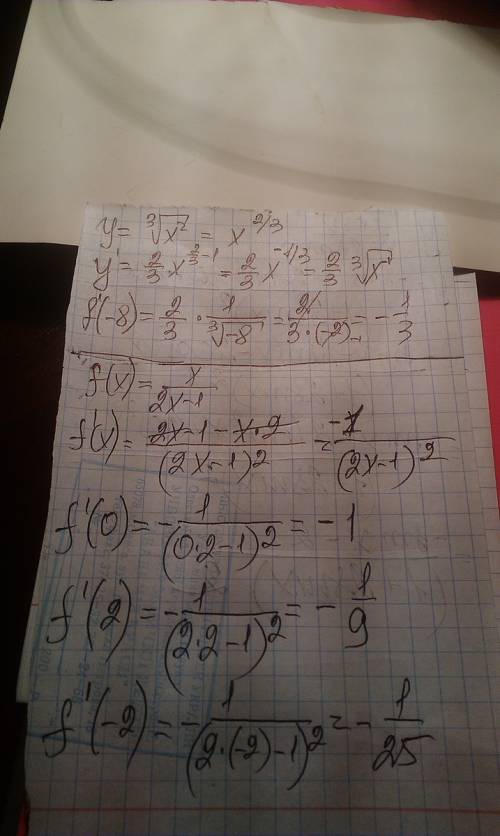 y = ∛x² = x^2/3
y' = 2/3 x^(2/3-1) = 2/3 x^-1/3 = 2/3 ∛x
f'(-8) = 2/3 · 1/∛-8 = 2/(3·(-2)) = -1/3
f(x) = x/(2x-1)
f'(x) = (2x-1-x·2)/(2x-1)² = -1/(2x-1)²
f'(0) = -1/(0·2-1)² = -1
f'(2) = -1/(2·2-1)² = -1/9
f'(-2) = -1/(2·(-2)-1)² = -1/25